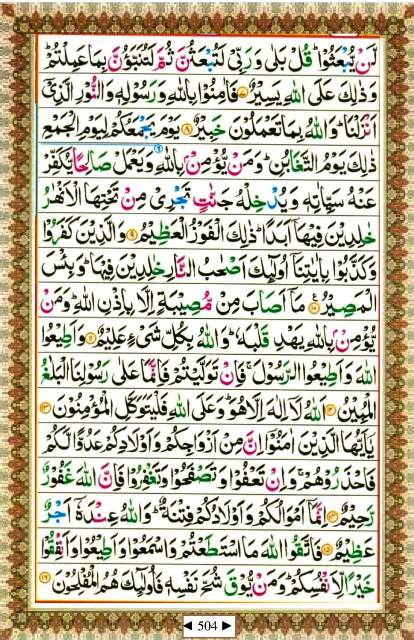 لَّنۡ يُّبۡعَثُوۡا‌ؕ قُلۡ بَلٰى وَرَبِّىۡ لَـتُبۡعَـثُـنَّ ثُمَّ لَـتُنَـبَّـؤُنَّ بِمَا عَمِلۡـتُمۡ‌ؕ
وَذٰ لِكَ عَلَى اللّٰهِ يَسِيۡرٌ ۷ فَاٰمِنُوۡا بِاللّٰهِ وَرَسُوۡلِهٖ وَالنُّوۡرِ الَّذِىۡۤ
اَنۡزَلۡنَا‌ؕ وَاللّٰهُ بِمَا تَعۡمَلُوۡنَ خَبِيۡرٌ ۸ يَوۡمَ يَجۡمَعُكُمۡ لِيَوۡمِ الۡجَمۡعِ
ذٰ لِكَ يَوۡمُ التَّغَابُنِ‌ؕ وَمَنۡ يُّؤۡمِنۡۢ بِاللّٰهِ وَيَعۡمَلۡ صَالِحًـا يُّكَفِّرۡ
عَنۡهُ سَيِّاٰتِهٖ وَيُدۡخِلۡهُ جَنّٰتٍ تَجۡرِىۡ مِنۡ تَحۡتِهَا الۡاَنۡهٰرُ
خٰلِدِيۡنَ فِيۡهَاۤ اَبَدًا‌ؕ ذٰ لِكَ الۡفَوۡزُ الۡعَظِيۡمُ ۹ وَالَّذِيۡنَ كَفَرُوۡا
وَكَذَّبُوۡا بِاٰيٰتِنَاۤ اُولٰٓٮِٕكَ اَصۡحٰبُ النَّارِ خٰلِدِيۡنَ فِيۡهَا‌ؕ وَبِئۡسَ
الۡمَصِيۡرُ ۱۰ مَاۤ اَصَابَ مِنۡ مُّصِيۡبَةٍ اِلَّا بِاِذۡنِ اللّٰهِ‌ؕ وَمَنۡ
يُّؤۡمِنۡۢ بِاللّٰهِ يَهۡدِ قَلۡبَهٗ‌ؕ وَاللّٰهُ بِكُلِّ شَىۡءٍ عَلِيۡمٌ ۱۱ وَاَطِيۡعُوا
اللّٰهَ وَاَطِيۡعُوا الرَّسُوۡلَ‌ۚ فَاِنۡ تَوَلَّيۡتُمۡ فَاِنَّمَا عَلٰى رَسُوۡلِنَا الۡبَلٰغُ
الۡمُبِيۡنُ ۱۲ اَللّٰهُ لَاۤ اِلٰهَ اِلَّا هُوَ‌ؕ وَعَلَى اللّٰهِ فَلۡيَتَوَكَّلِ الۡمُؤۡمِنُوۡنَ ۱۳
يٰۤاَيُّهَا الَّذِيۡنَ اٰمَنُوۡۤا اِنَّ مِنۡ اَزۡوَاجِكُمۡ وَاَوۡلَادِكُمۡ عَدُوًّا لَّكُمۡ
فَاحۡذَرُوۡهُمۡ‌ۚ وَاِنۡ تَعۡفُوۡا وَتَصۡفَحُوۡا وَتَغۡفِرُوۡا فَاِنَّ اللّٰهَ غَفُوۡرٌ
رَّحِيۡمٌ ۱۴ اِنَّمَاۤ اَمۡوَالُكُمۡ وَاَوۡلَادُكُمۡ فِتۡنَةٌ‌ؕ وَاللّٰهُ عِنۡدَهٗۤ اَجۡرٌ
عَظِيۡمٌ ۱۵ فَاتَّقُوا اللّٰهَ مَا اسۡتَطَعۡتُمۡ وَاسۡمَعُوۡا وَاَطِيۡعُوۡا وَاَنۡفِقُوۡا
خَيۡرًا لِّاَنۡفُسِكُمۡ‌ؕ وَمَنۡ يُّوۡقَ شُحَّ نَفۡسِهٖ فَاُولٰٓٮِٕكَ هُمُ الۡمُفۡلِحُوۡنَ ۱۶
◄ 504 ►